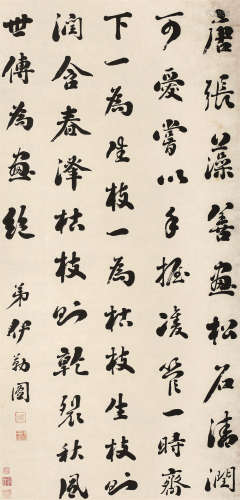 唐張藻善畫松石清潤
可愛嘗以手握雙管一時齊
下一為生枝一為枯枝生枝則
潤含春澤枯枝則乾裂秋風
世傳為畫絕
弟伊勒圖